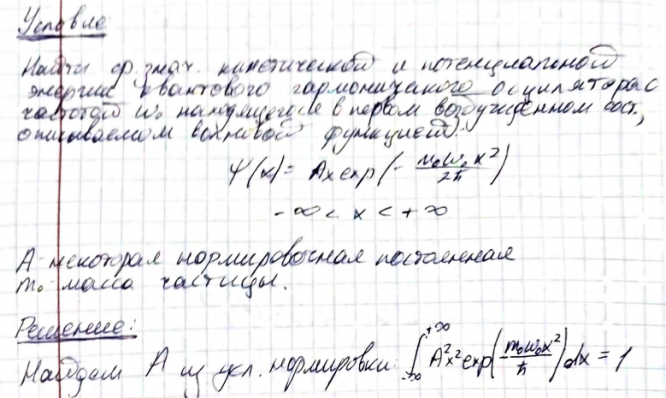 Условие
Найти ср. знач. кинетической и потенциальной
энергии квантового гармонического осцилятора с
частотой ω₀ находящегося в первом возбужденном сост.,
описываемом волновой функцией:
Ψ(x) = Ax exp(- m₀ω₀x²/2ħ)
-∞ < x < +∞
A- некоторая нормировочная постоянная
m₀ масса частицы.
Решение:
Найдем A из усл. нормировки: ∫₋∞⁺∞ A²x² exp(-m₀ω₀x²/ħ) dx = 1